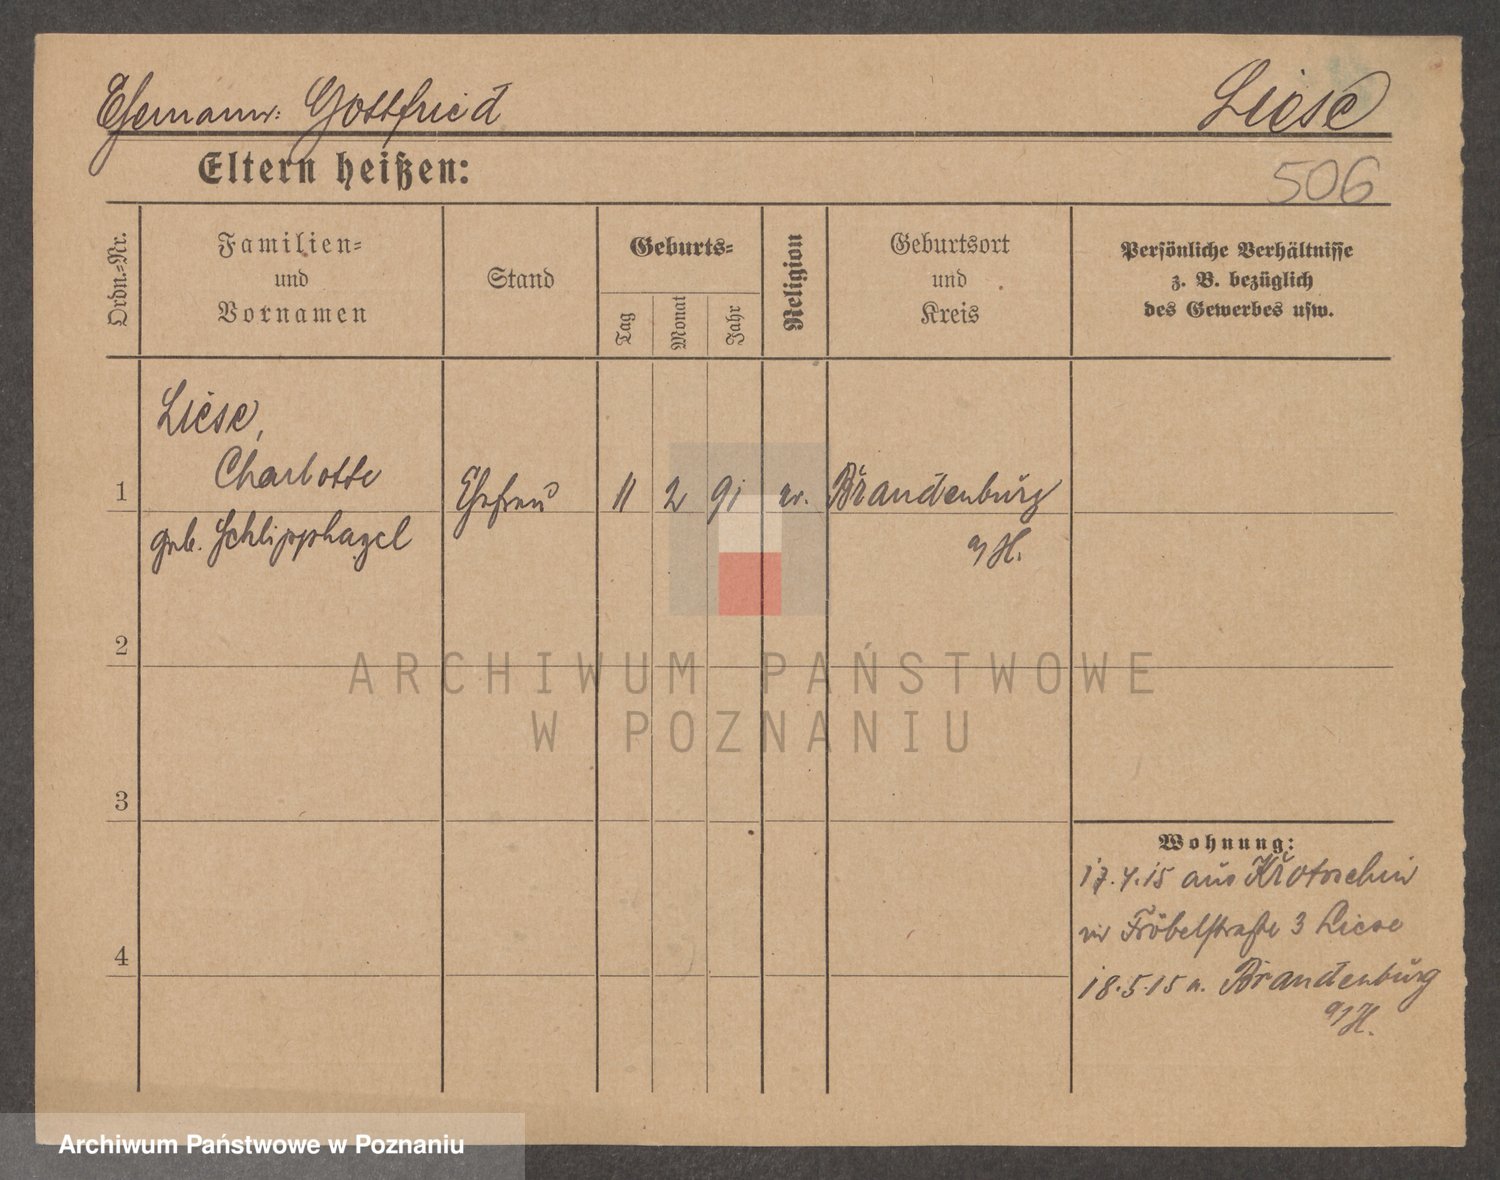 Ehemann: Gottfried
Liese
Eltern heißen:
506
Ordn.=Nr.
Familien=
und
Vornamen
Stand
Geburts=
Tag
Monat
Jahr
Religion
Geburtsort
und
Kreis
Persönliche Verhältnisse
z. B. bezüglich
des Gewerbes usw.
Liese,
Charlotte
1
Ehefrau
11 2 91 ev. Brandenburg
geb. Schlipphagel
a/H.
2
ARCHIWUM PAŃSTWOWE
W POZNANIU
3
Wohnung:
17.4.15 aus Krotoschin
Fröbelstraße 3 Liese
4
18.5.15 n. Brandenburg
a/H.
Archiwum Państwowe w Poznaniu